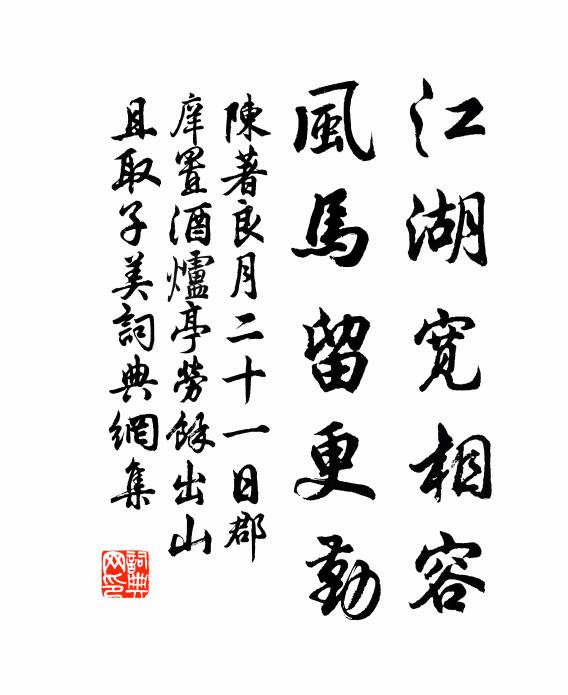 江湖寬相容
風馬留更勤
陳著良月二十一日郡
庠置酒爐亭勞餘出山
且取子美詞典網集
詞典網印